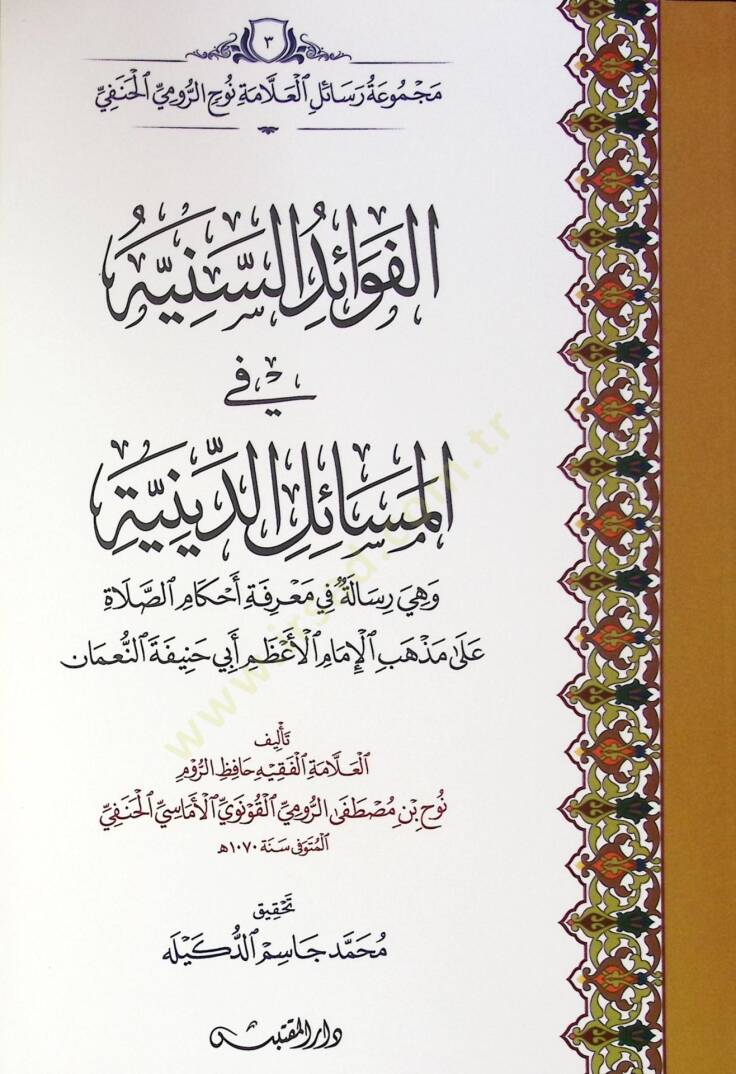 ٣
مَجْمُوعَةُ رَسَائِلِ الْعَلَّامَةِ نُوحٍ الرُّومِيِّ الْحَنَفِيِّ
الفَوَائِدُ السَّنِيَّه
في
المَسَائِلِ الدِّينِيَّةِ
وَهِيَ رِسَالَةٌ فِي مَعْرِفَةِ أَحْكَامِ الصَّلَاةِ
عَلَى مَذْهَبِ الْإِمَامِ الْأَعْظَمِ أَبِي حَنِيفَةَ النُّعْمَان
تَأْلِيف
الْعَلَّامَةِ الْفَقِيهِ حَافِظِ الرُّومِ
نُوحِ بْنِ مُصْطَفَى الرُّومِيِّ الْقُونَوِيِّ الْأَمَاسِيِّ الْحَنَفِيِّ
الْمُتَوَفَّى سَنَة ١٠٧٠هـ
تَحْقِيق
مُحَمَّد جَاسِم الدُّكَيْلَه
دار المقتبس
www.irsad.com.tr